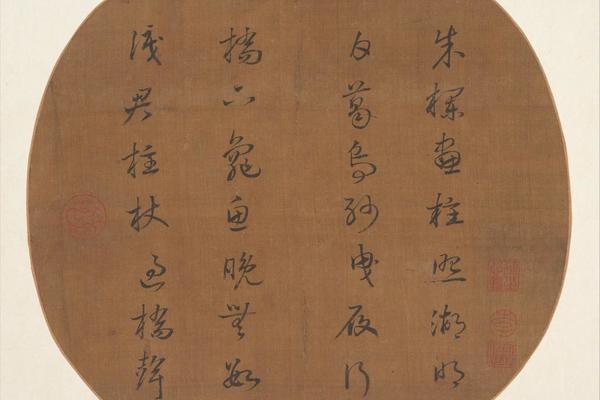 朱欄畫柱照湖明
白葛烏紗曳履行
橋下龜魚晚無數
識君柱杖過橋聲